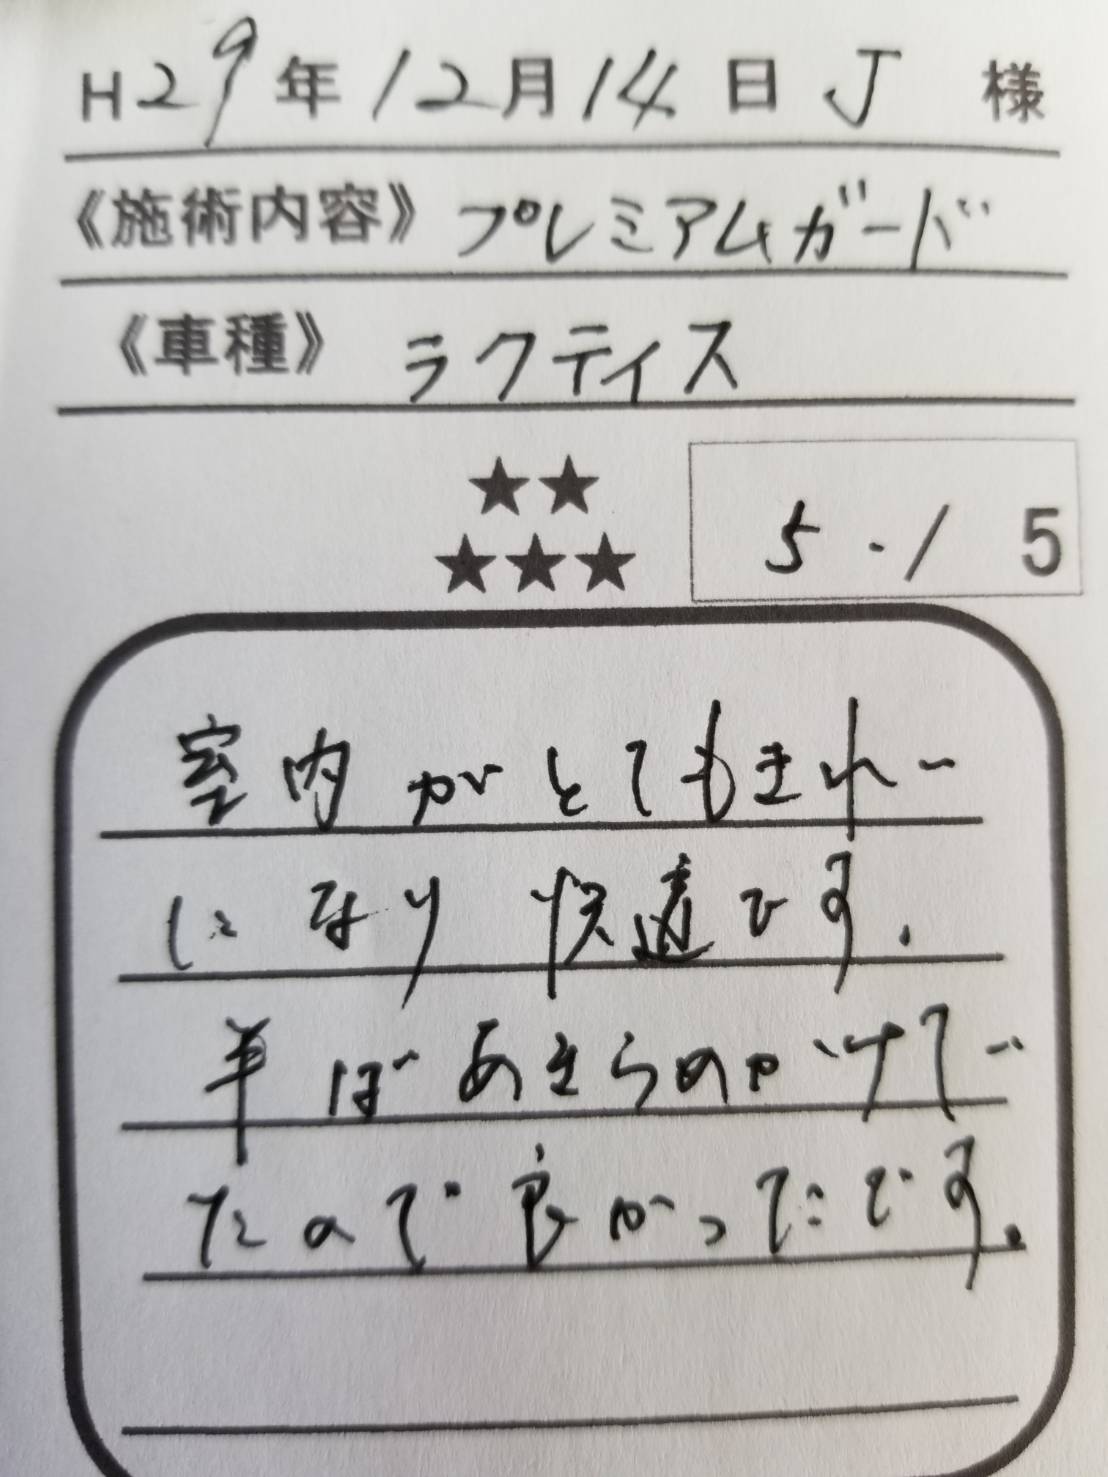 H29年12月14日 J 様
《施術内容》プレミアムガード
《車種》ラクティス
★★
★★★
5 ・/ 5
室内がとてもきれい
になり快適です.
半ばあきらめかけてい
たので良かったです。